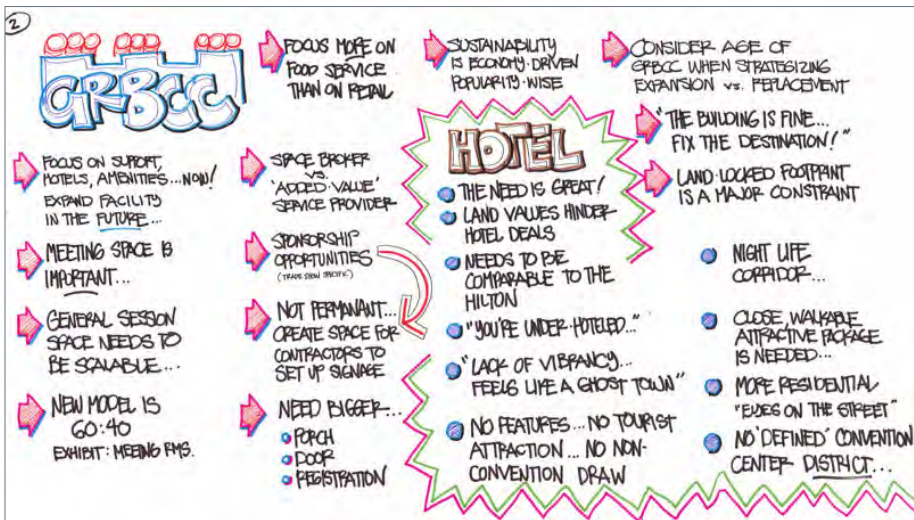 2
GRBCC
FOCUS ON SUPPORT,
HOTELS, AMENITIES...NOW!
EXPAND FACILITY
IN THE FUTURE...
MEETING SPACE IS
IMPORTANT...
GENERAL SESSION
SPACE NEEDS TO
BE SCALABLE...
NEW MODEL IS
60:40
EXHIBIT: MEETING RMS.
FOCUS MORE ON
FOOD SERVICE
THAN ON RETAIL
SPACE BROKER
VS.
'ADDED-VALUE'
SERVICE PROVIDER
SPONSORSHIP
OPPORTUNITIES
(TRADE SHOW SPECIFIC)
NOT PERMANANT...
CREATE SPACE FOR
CONTRACTORS TO
SET UP SIGNAGE
NEED BIGGER...
PORCH
DOOR
REGISTRATION
SUSTAINABILITY
IS ECONOMY-DRIVEN
POPULARITY-WISE
HOTEL
THE NEED IS GREAT!
LAND VALUES HINDER
HOTEL DEALS
NEEDS TO BE
COMPARABLE TO THE
HILTON
"YOU'RE UNDER-HOTELED..."
"LACK OF VIBRANCY...
FEELS LIKE A GHOST TOWN"
NO FEATURES...NO TOURIST
ATTRACTION...NO NON-
CONVENTION DRAW
CONSIDER AGE OF
GRBCC WHEN STRATEGIZING
EXPANSION vs. REPLACEMENT
"THE BUILDING IS FINE...
FIX THE DESTINATION!"
LAND-LOCKED FOOTPRINT
IS A MAJOR CONSTRAINT
NIGHT LIFE
CORRIDOR...
CLOSE, WALKABLE
ATTRACTIVE PACKAGE
IS NEEDED...
MORE RESIDENTIAL
"EYES ON THE STREET"
NO 'DEFINED' CONVENTION
CENTER DISTRICT...